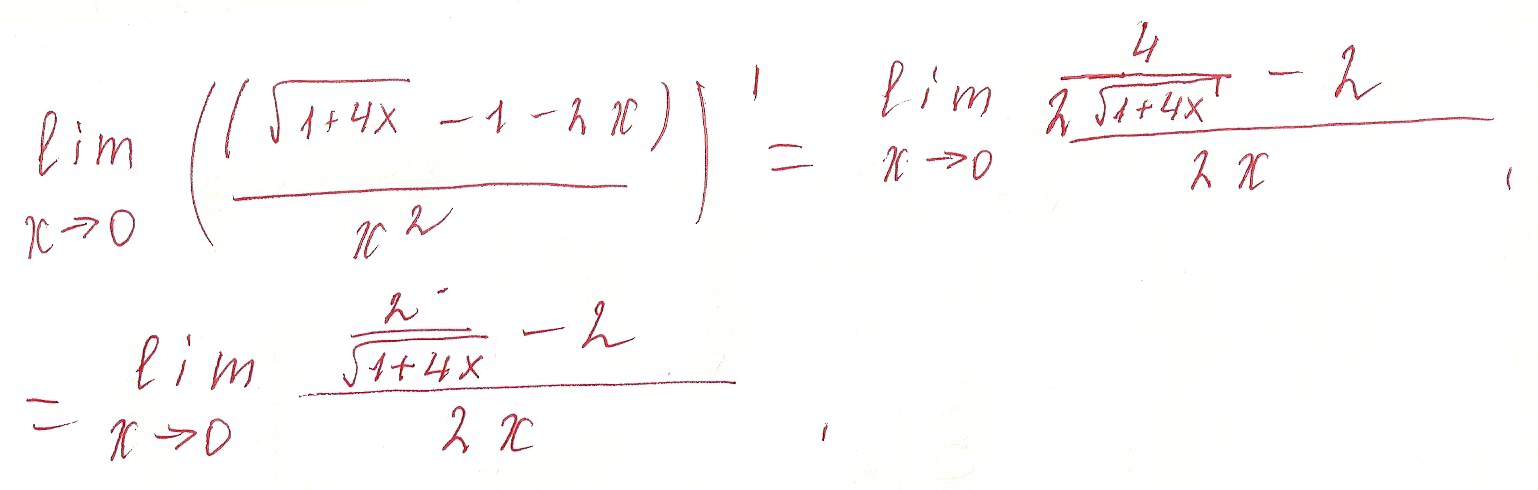 lim x→0 ((√(1+4x) - 1 - 2x) / x²)' = lim x→0 (4/(2√(1+4x)) - 2) / (2x)
= lim x→0 (2/√(1+4x) - 2) / (2x)